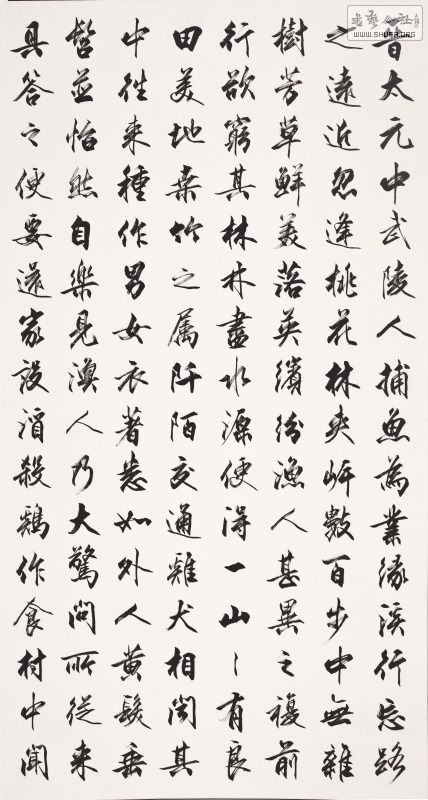 晉太元中武陵人捕魚為業緣溪行忘路
之遠近忽逢桃花林夾岸數百步中無雜
樹芳草鮮美落英繽紛漁人甚異之復前
行欲窮其林林盡水源便得一山〻有良
田美地桑竹之属阡陌交通雞犬相聞其
中往來種作男女衣著悉如外人黄髮垂
髫並怡然自樂見漁人乃大驚問所從來
具答之便要還家設酒殺鷄作食村中聞
書藝公社
WWW.SHUFA.ORG